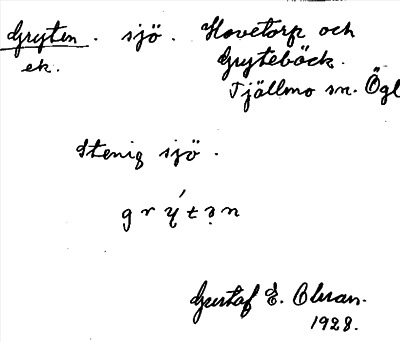 Gryten. sjö. Hovetorp och
ek. Grytebäck.
Tjällmo sn. Ögl
Stenig sjö.
grý̨tə̣n
Gustaf E. Olsson.
1928.